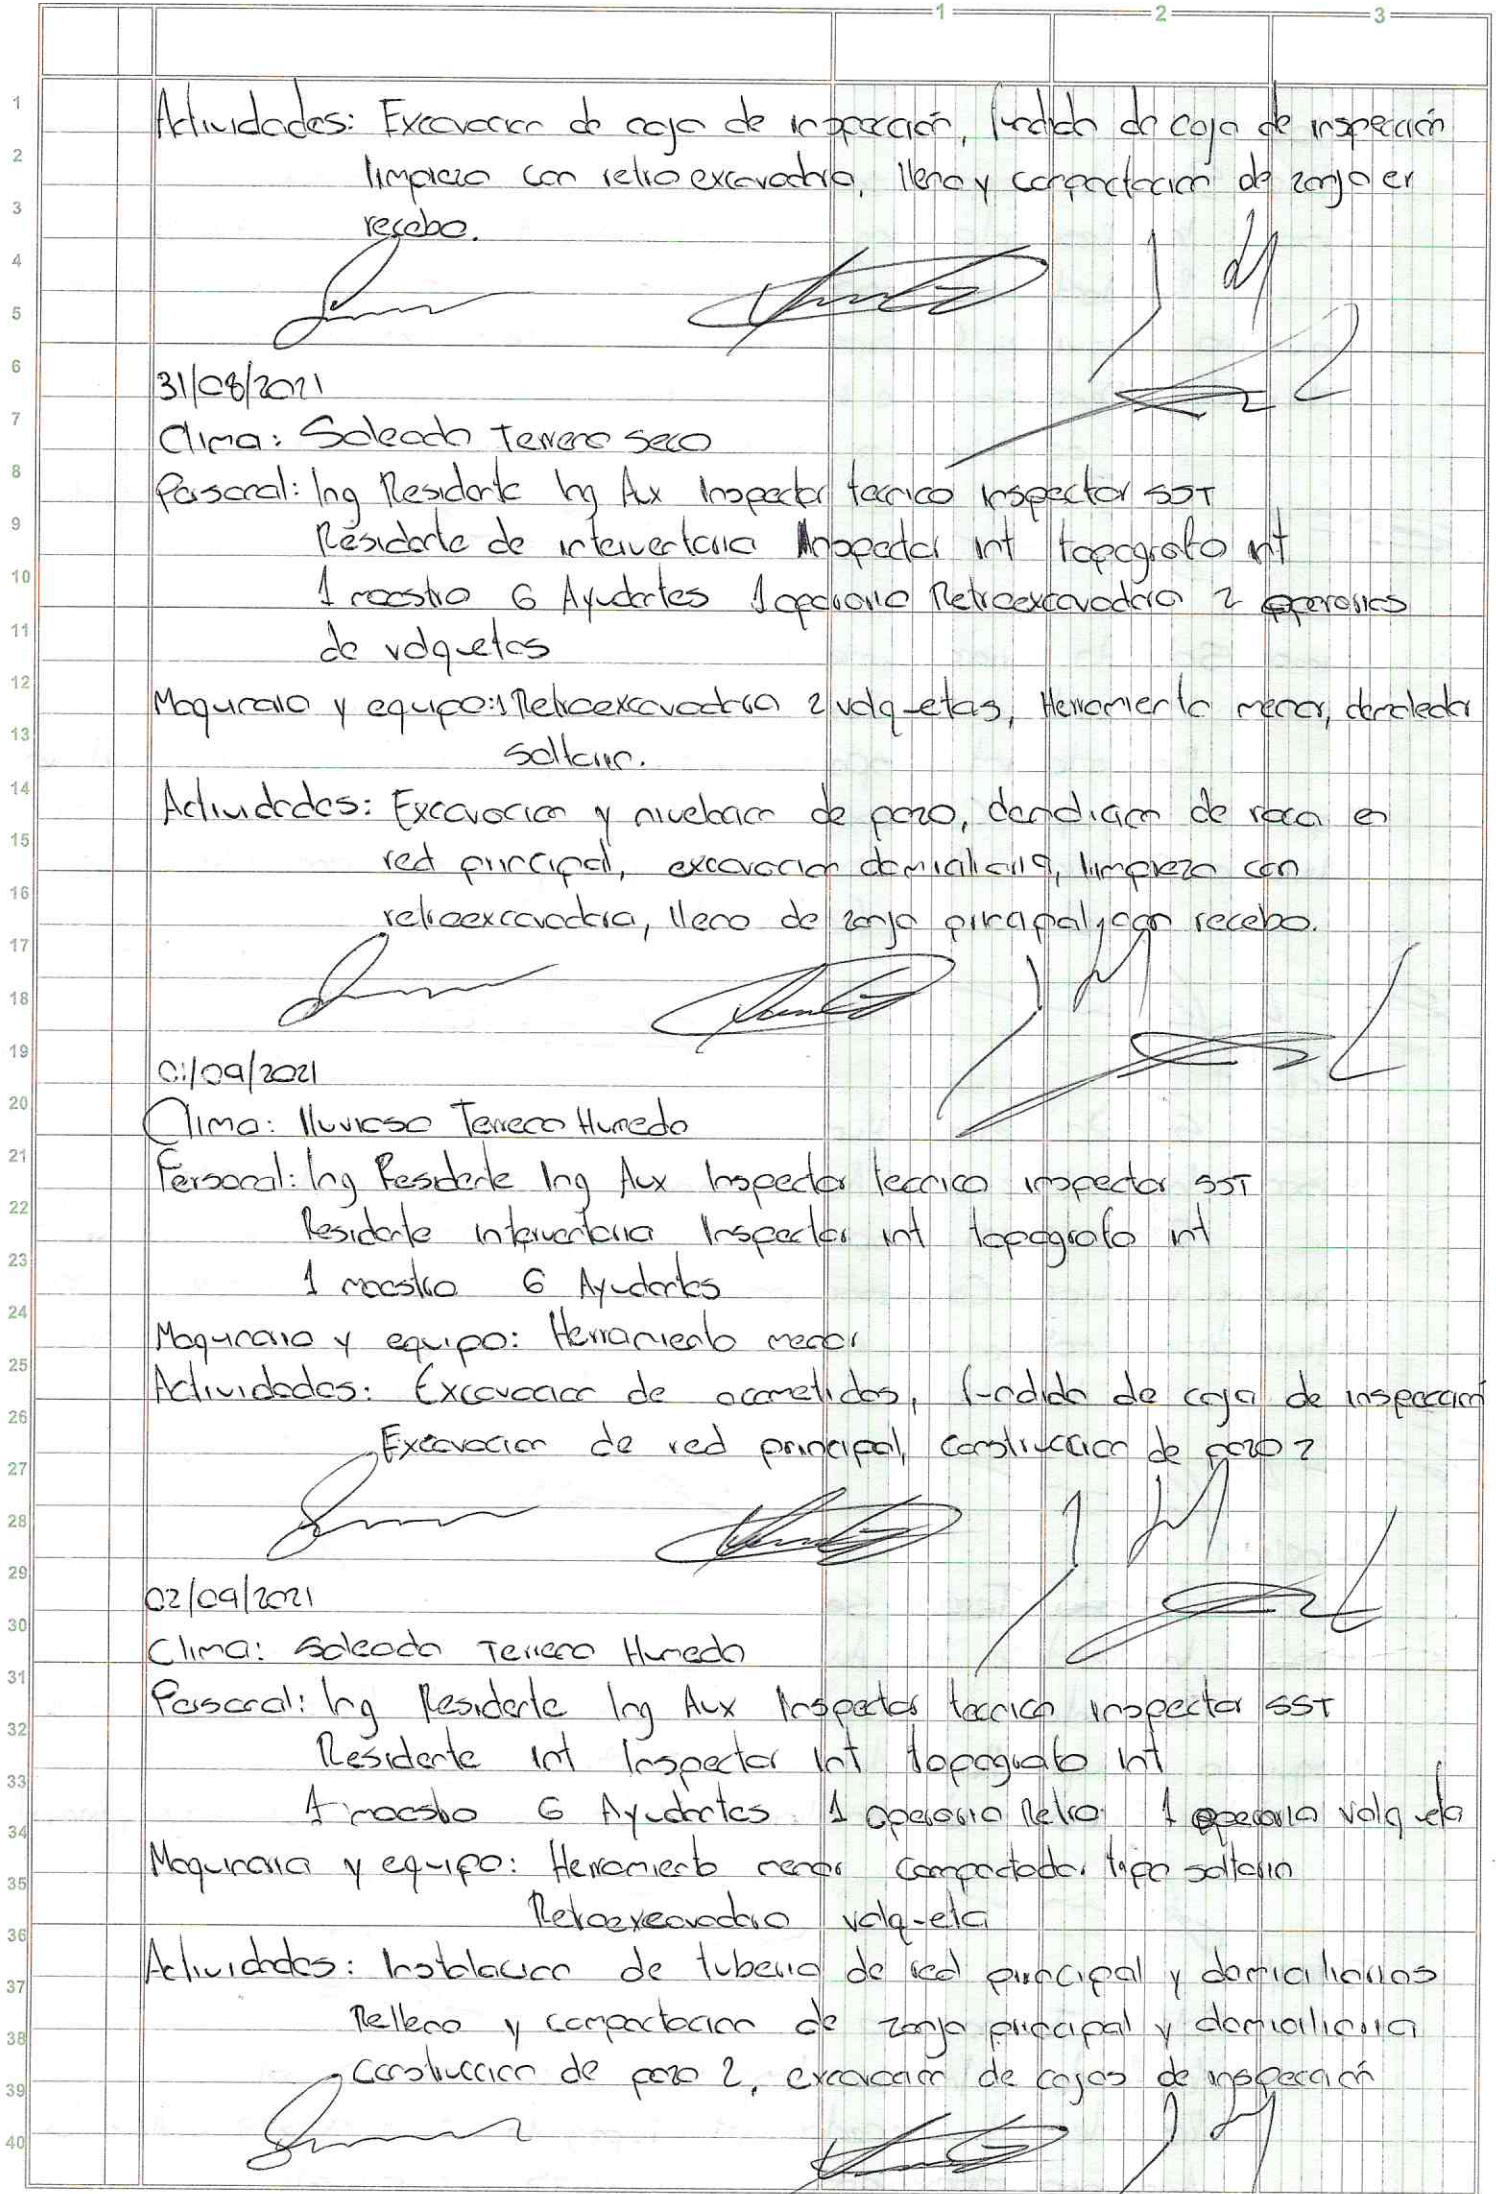 1 2 3
1 Actividades: Excavacion de caja de inspección, fundida de caja de inspección
2 limpieza con retroexcavadora, lleno y compactacion de zanja en
3 recebo.
4
5
6 31/08/2021
7 Clima: Soleado Terreno seco
8 Personal: Ing Residente Ing Aux Inspector tecnico inspector SST
9 Residente de interventoria Inspector int topografo int
10 1 maestro 6 Ayudantes 1 operario Retroexcavadora 2 operarios
11 de volquetas
12 Maquinaria y equipo: 1 Retroexcavadora 2 volquetas, Herramienta menor, demoledor
13 saltarin.
14 Actividades: Excavacion y nivelacion de pozo, demolicion de roca en
15 red principal, excavacion domiciliaria, limpieza con
16 retroexcavadora, lleno de zanja principal, con recebo.
17
18
19 01/09/2021
20 Clima: lluvioso Terreno Humedo
21 Personal: Ing Residente Ing Aux Inspector tecnico inspector SST
22 Residente interventoria Inspector int topografo int
23 1 maestro 6 Ayudantes
24 Maquinaria y equipo: Herramienta menor
25 Actividades: Excavacion de acometidas, fundida de caja de inspeccion
26 Excavacion de red principal, construccion de pozo 2
27
28
29 02/09/2021
30 Clima: Soleado Terreno Humedo
31 Personal: Ing Residente Ing Aux Inspector tecnico inspector SST
32 Residente int Inspector int topografo int
33 1 maestro 6 Ayudantes 1 operario Retro 1 operario volqueta
34 Maquinaria y equipo: Herramienta menor compactador tipo saltarin
35 Retroexcavadora volqueta
36 Actividades: Instalacion de tuberia de red principal y domiciliarias
37 Relleno y compactacion de zanja principal y domiciliaria
38 construccion de pozo 2, excavación de cajas de inspección
39
40